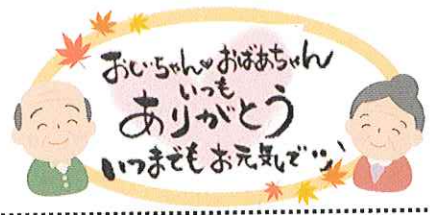 おじいちゃん♥おばあちゃん
いつも
ありがとう
いつまでもお元気で